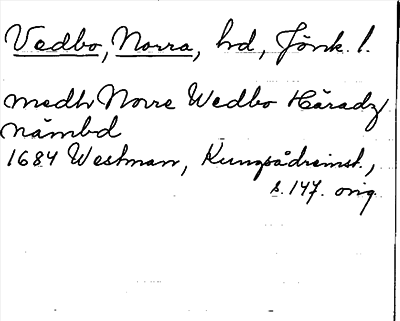 Vedbo, Norra, hd, Jönk. l.
medh Norre Wedbo Häradz
nämbd
1684 Westman, Kungsådreinst.,
s. 147. orig.